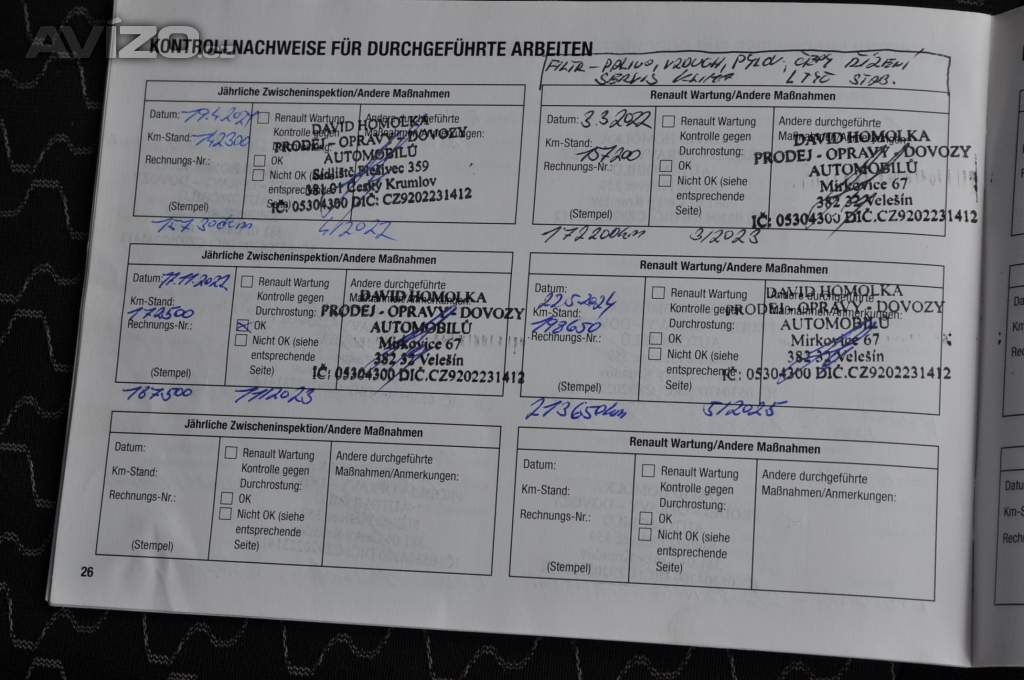 AVÍZO.CZ
KONTROLLNACHWEISE FÜR DURCHGEFÜHRTE ARBEITEN
SERVIS KLIMA
Jährliche Zwischeninspektion/Andere Maßnahmen
Datum: 19.4.2021
Km-Stand: 142300
Rechnungs-Nr.:
(Stempel)
Renault Wartung
Kontrolle gegen
Durchrostung:
OK
Nicht OK (siehe
entsprechende
Seite)
Andere durchgeführte
Maßnahmen/Anmerkungen:
DAVID HOMOLKA
PRODEJ - OPRAVY - DOVOZY
AUTOMOBILŮ
Sídliště Plešivec 359
381 01 Český Krumlov
IČ: 05304300 DIČ: CZ9202231412
157300km 4/2022
Renault Wartung/Andere Maßnahmen
Datum: 3.3.2022
Km-Stand: 157200
Rechnungs-Nr.:
(Stempel)
Renault Wartung
Kontrolle gegen
Durchrostung:
OK
Nicht OK (siehe
entsprechende
Seite)
Andere durchgeführte
Maßnahmen/Anmerkungen:
DAVID HOMOLKA
PRODEJ - OPRAVY - DOVOZY
AUTOMOBILŮ
Mirkovice 67
382 32 Velešín
IČ: 05304300 DIČ.CZ9202231412
172200km 3/2023
Jährliche Zwischeninspektion/Andere Maßnahmen
Datum: 11.11.2022
Km-Stand: 172500
Rechnungs-Nr.:
(Stempel)
Renault Wartung
Kontrolle gegen
Durchrostung:
OK
Nicht OK (siehe
entsprechende
Seite)
Andere durchgeführte
Maßnahmen/Anmerkungen:
DAVID HOMOLKA
PRODEJ - OPRAVY - DOVOZY
AUTOMOBILŮ
Mirkovice 67
382 32 Velešín
IČ: 05304300 DIČ.CZ9202231412
187500 11/2023
Renault Wartung/Andere Maßnahmen
Datum: 22.5.2024
Km-Stand: 198650
Rechnungs-Nr.:
(Stempel)
Renault Wartung
Kontrolle gegen
Durchrostung:
OK
Nicht OK (siehe
entsprechende
Seite)
Andere durchgeführte
Maßnahmen/Anmerkungen:
DAVID HOMOLKA
PRODEJ - OPRAVY - DOVOZY
AUTOMOBILŮ
Mirkovice 67
382 32 Velešín
IČ: 05304300 DIČ.CZ9202231412
213650km 5/2025
Jährliche Zwischeninspektion/Andere Maßnahmen
Datum:
Km-Stand:
Rechnungs-Nr.:
(Stempel)
Renault Wartung
Kontrolle gegen
Durchrostung:
OK
Nicht OK (siehe
entsprechende
Seite)
Andere durchgeführte
Maßnahmen/Anmerkungen:
Renault Wartung/Andere Maßnahmen
Datum:
Km-Stand:
Rechnungs-Nr.:
(Stempel)
Renault Wartung
Kontrolle gegen
Durchrostung:
OK
Nicht OK (siehe
entsprechende
Seite)
Andere durchgeführte
Maßnahmen/Anmerkungen:
26